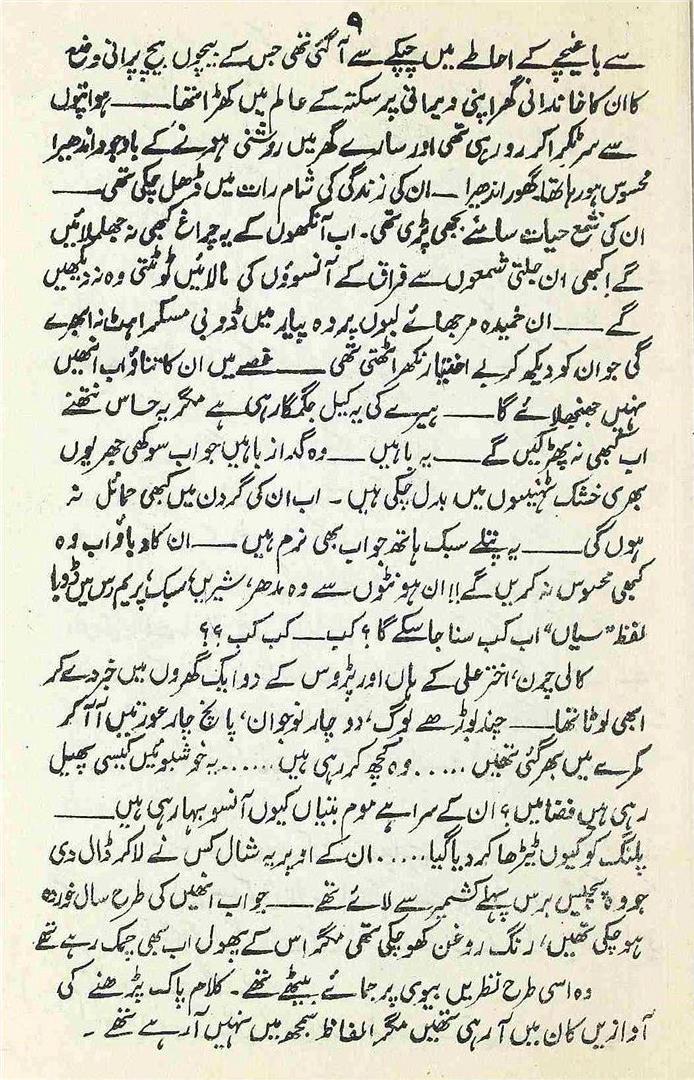 ۹
سے باغیچے کے احاطے میں چپکے سے آ گئی تھی جس کے بیچوں بیچ پرانی وضع
کا ان کا خاندانی گھر اپنی ویرانی پر سکتہ کے عالم میں کھڑا تھا ـــــ ہوا پتوں
سے سر ٹکرا کر رو رہی تھی اور سارے گھر میں روشنی ہونے کے باوجود اندھیرا
محسوس ہو رہا تھا۔ گھور اندھیرا ـــ ان کی زندگی کی شام رات میں ڈھل چکی تھی ـــــ
ان کی شمع حیات سامنے بجھی پڑی تھی۔ اب آنکھوں کے یہ چراغ کبھی نہ جھلملائیں
گے! کبھی ان جلتی شمعوں سے فراق کے آنسوؤں کی مالائیں ٹوٹتی وہ نہ دیکھیں
گے ـــــ ان خمیدہ مرجھائے لبوں پر وہ پیار میں ڈوبی مسکراہٹ نہ ابھرے
گی جو ان کو دیکھ کر بے اختیار نکھر اٹھتی تھی ـــــ غصے میں ان کا تناؤ اب انھیں
نہیں جھنجھلائے گا ـــــ ہیرے کی یہ کیل جگمگا رہی ہے مگر یہ حساس نتھنے
اب کبھی نہ پھڑکیں گے ـــــ یہ باہیں ـــــ وہ گداز باہیں جو اب سوکھی جھریوں
بھری خشک ٹہنیوں میں بدل چکی ہیں ۔ اب ان کی گردن میں کبھی حمائل نہ
ہوں گی ـــــ یہ پتلے سبک ہاتھ جو اب بھی نرم ہیں ـــــ ان کا دباؤ اب وہ
کبھی محسوس نہ کریں گے!! ان ہونٹوں سے وہ مدھر، شیریں، سبک، پریم رس میں ڈوبا
لفظ "سیاں" اب کب سنا جا سکے گا؟ کب ـــ کب کب ؟؟
کالی چرن، اختر علی کے ہاں اور پڑوس کے دو ایک گھروں میں خبر دے کر
ابھی لوٹا تھا ـــــ چند بوڑھے لوگ، دو چار نوجوان، پانچ چار عورتیں آ آ کر
کمرے میں بھر گئی تھیں ..... وہ کچھ کر رہی ہیں ...... یہ خوشبوئیں کیسی پھیل
رہی ہیں فضا میں؟ ان کے سراہے موم بتیاں کیوں آنسو بہا رہی ہیں ـــــ
پلنگ کو کیوں ٹیڑھا کر دیا گیا ..... ان کے اوپر یہ شال کس نے لا کر ڈال دی
جو وہ پچیس برس پہلے کشمیر سے لائے تھے ـــــ جو اب انھیں کی طرح سال خوردہ
ہو چکی تھیں، رنگ روغن کھو چکی تھی مگر اس کے پھول اب بھی چمک رہے تھے
وہ اسی طرح نظریں بیوی پر جمائے بیٹھے تھے ۔ کلام پاک پڑھنے کی
آوازیں کان میں آ رہی تھیں مگر الفاظ سمجھ میں نہیں آ رہے تھے ۔